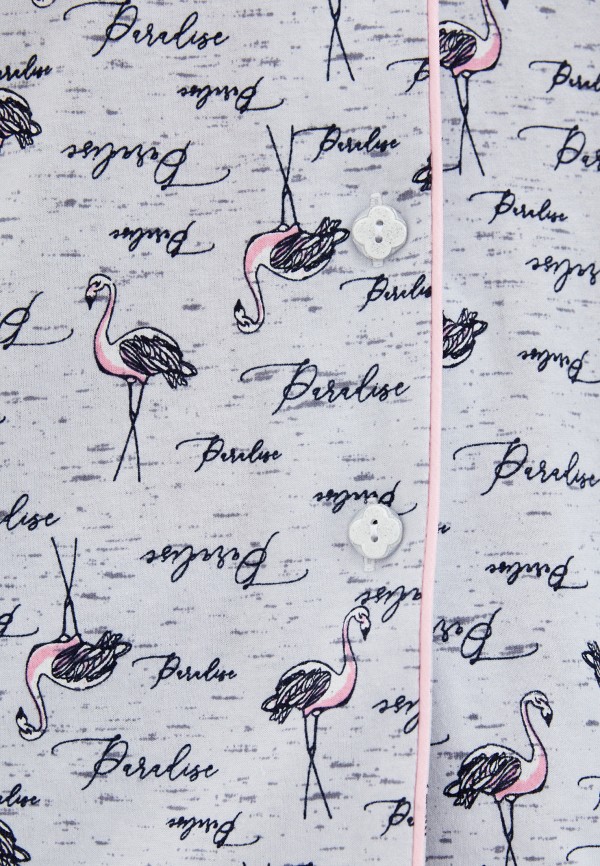 Paradise
Paradise
Paradise
Paradise
Paradise
Paradise
Paradise
Paradise
Paradise
Paradise
Paradise
Paradise
Paradise
Paradise
Paradise
Paradise
Paradise
Paradise